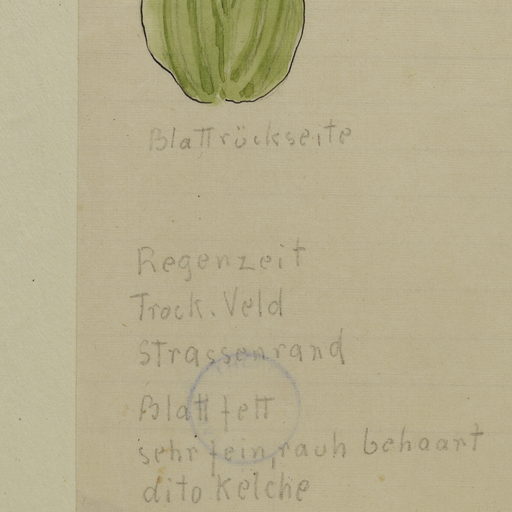 Blattrückseite
Regenzeit
Trock. Veld
Strassenrand
Blatt fett
sehr fein, rauh behaart
dito Kelche